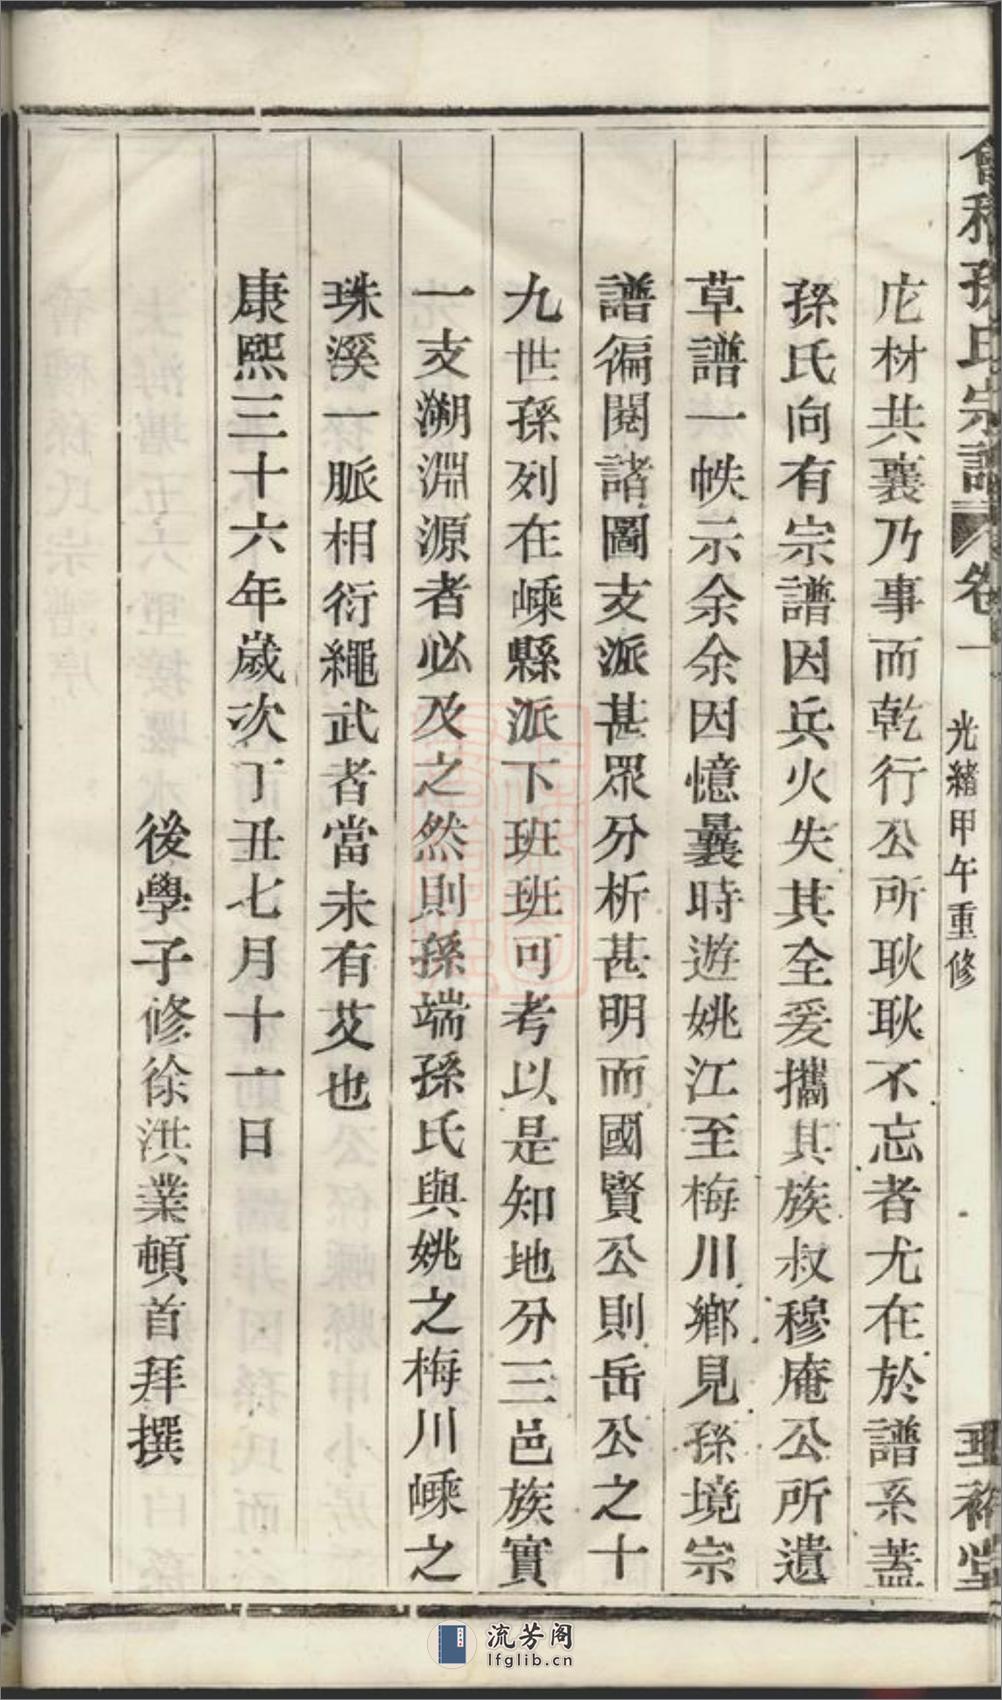 會稽孫氏宗譜 卷一 光緒甲午重修 垂裕堂
庀材共襄乃事而乾行公所耿耿不忘者尤在於譜系蓋
孫氏向有宗譜因兵火失其全爰攜其族叔穆庵公所遺
草譜一帙示余余因憶曩時遊姚江至梅川鄉見孫境宗
譜徧閱諸圖支派甚眾分析甚明而國賢公則岳公之十
九世孫列在嵊縣派下班班可考以是知地分三邑族實
一支溯淵源者必及之然則孫端孫氏與姚之梅川嵊之
珠溪一脈相衍繩武者當未有艾也
康熙三十六年歲次丁丑七月十一日
後學子修徐洪業頓首拜撰
流芳阁
lfglib.cn